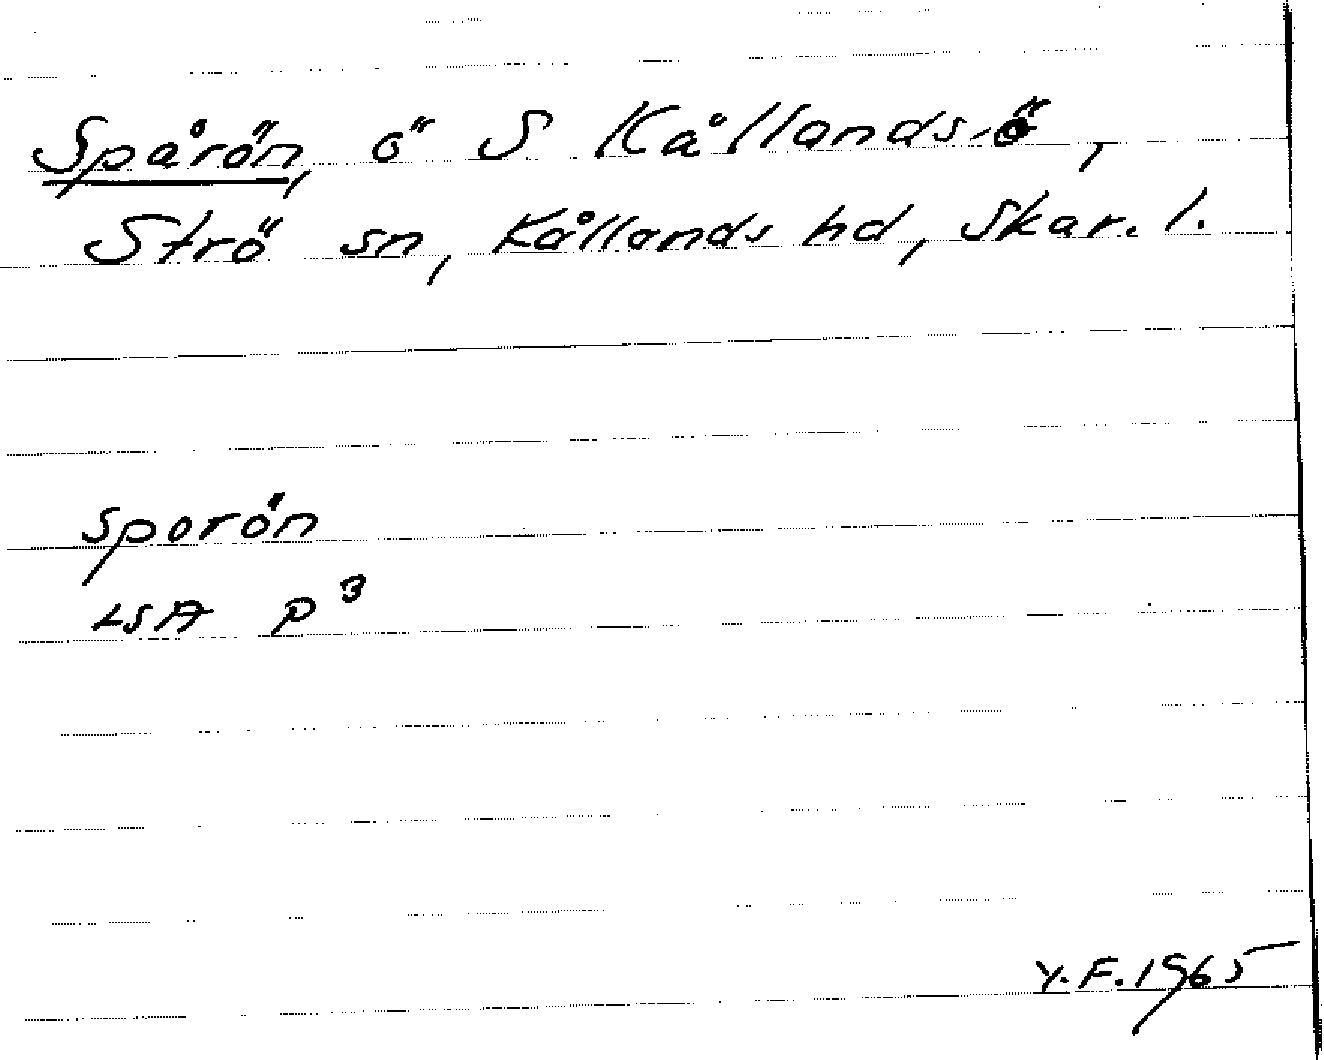 Spårön, ö S Kållands-ö,
Strö sn, Kållands hd, Skar. l.
Sporön
LSA P³
Y.F. 1965